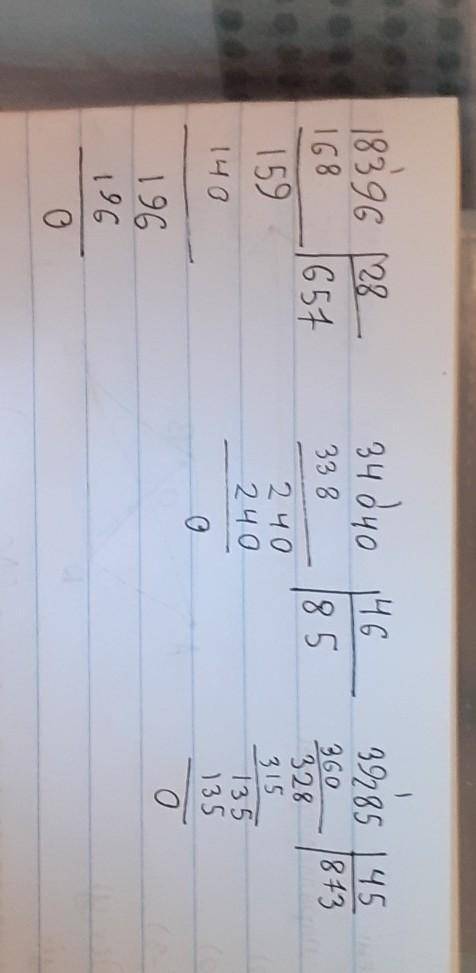 18396 28
168 657
159
140
196
196
0
34040 46
338 85
240
240
0
39285 45
360 873
328
315
135
135
0